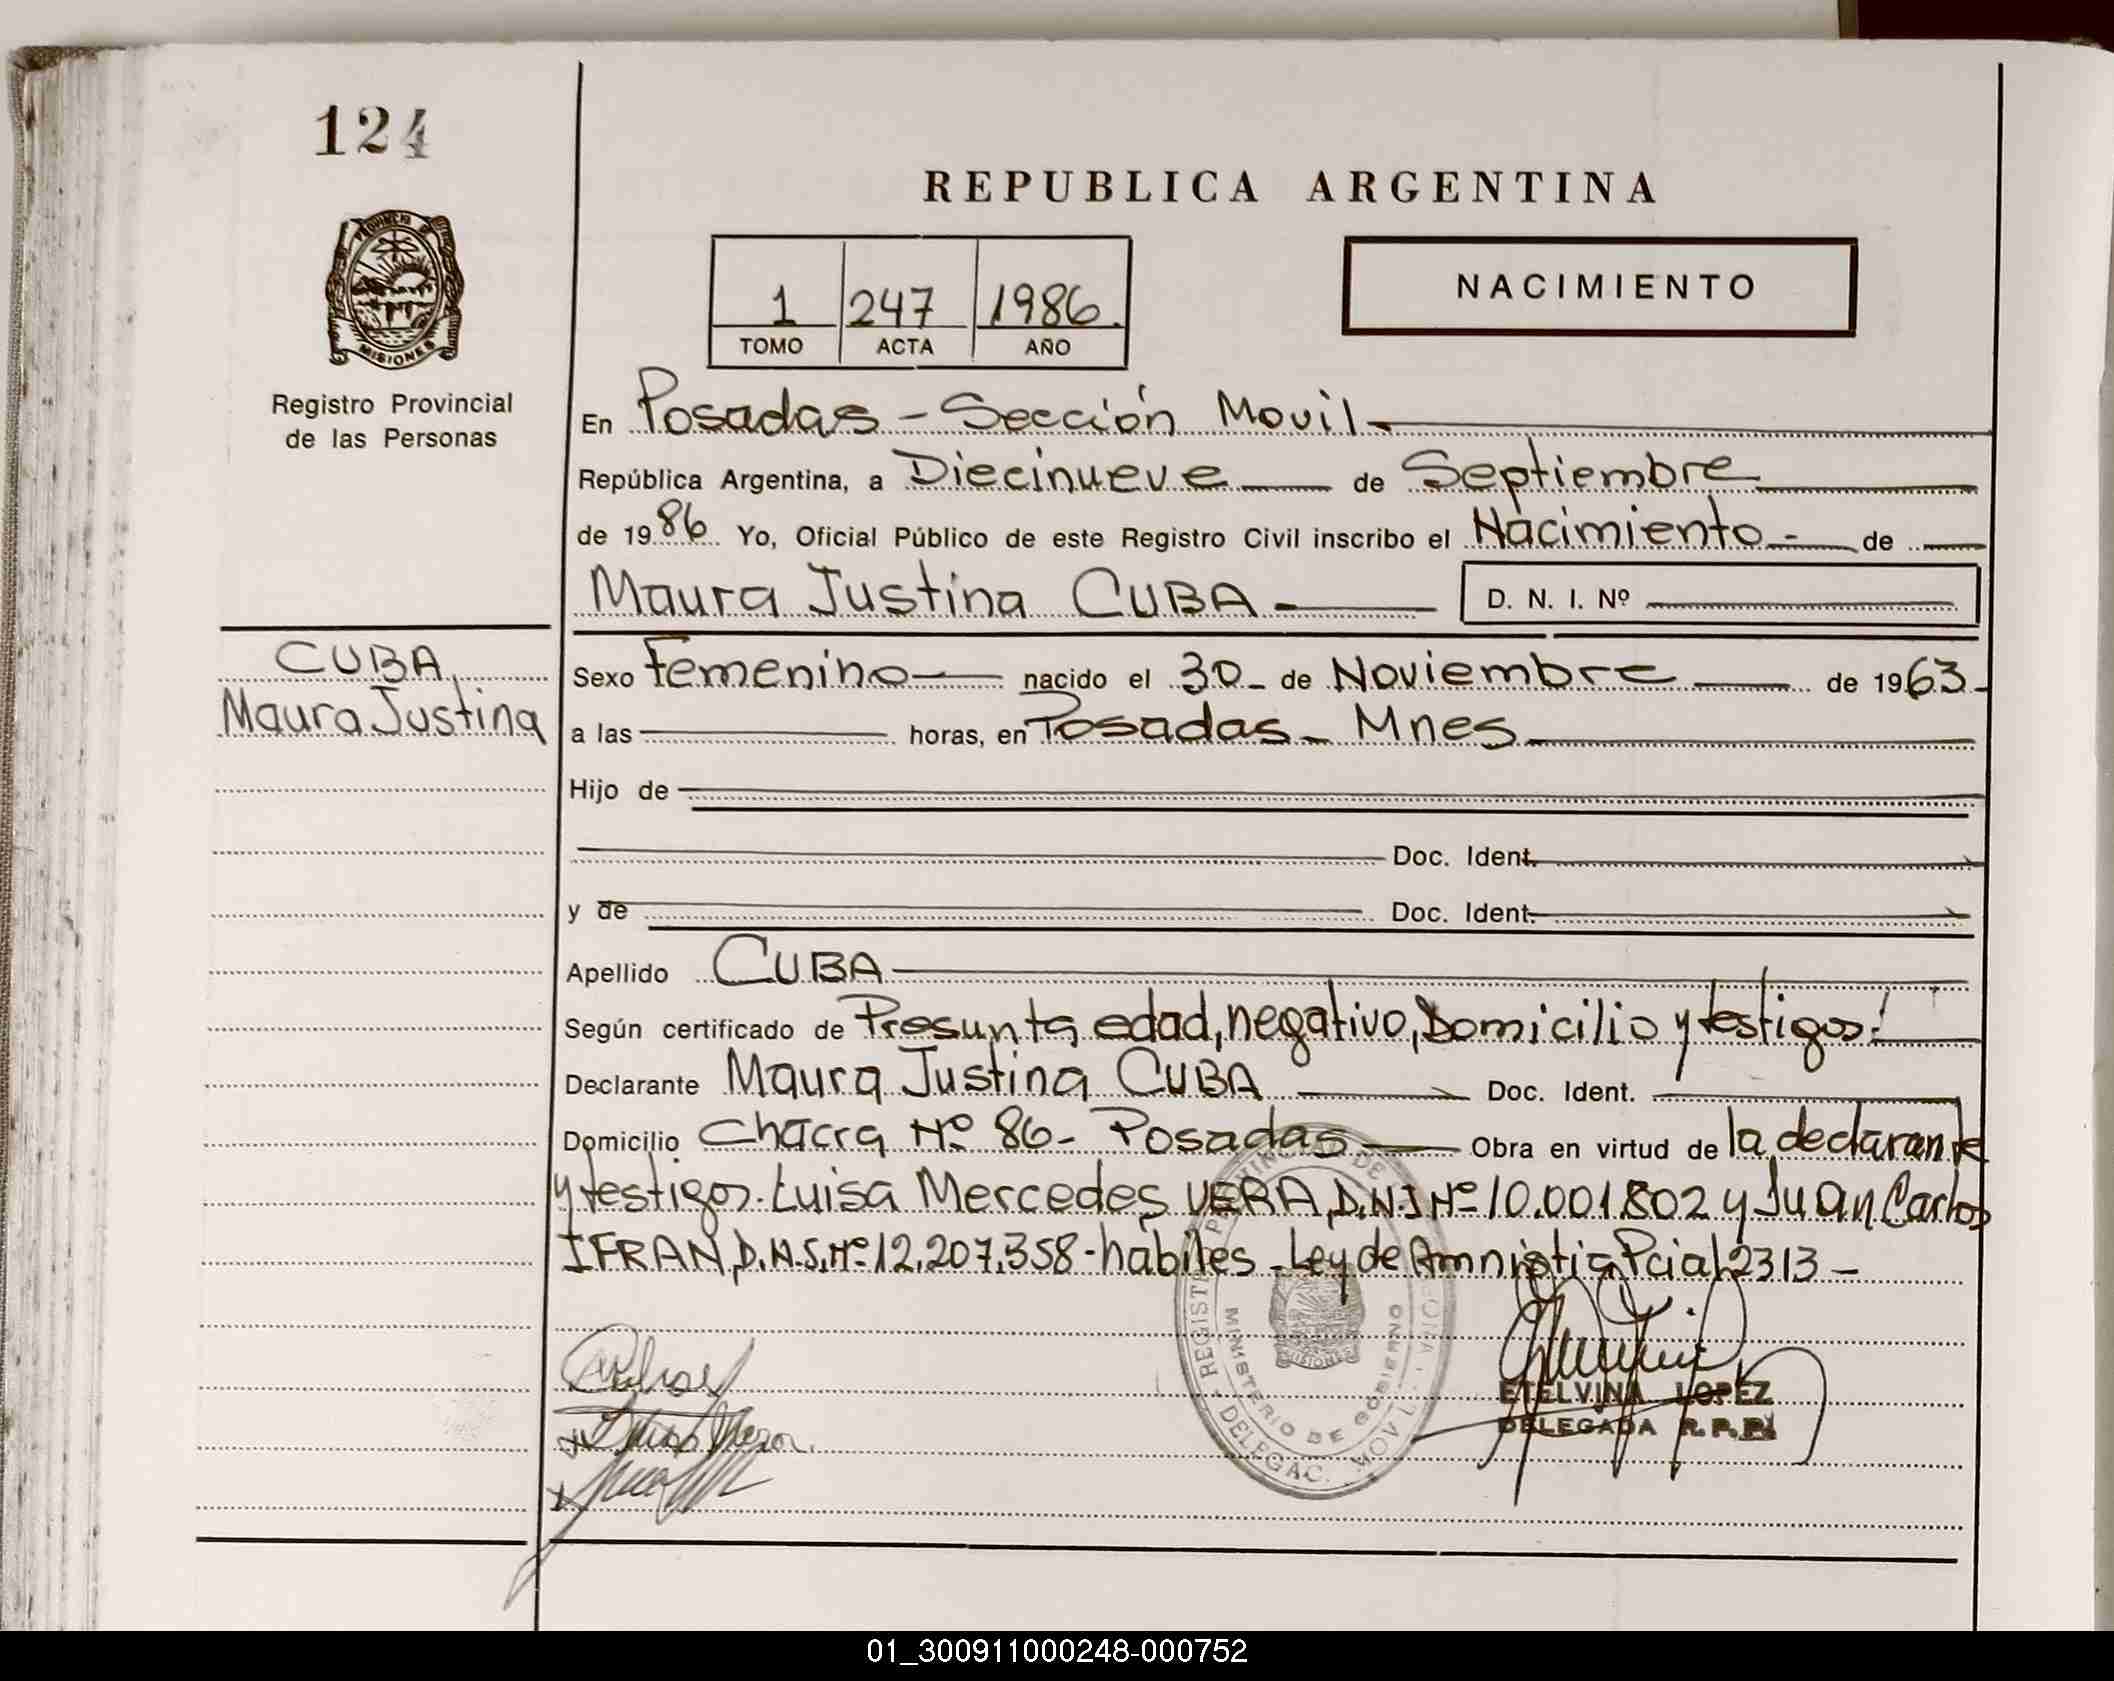 124
REPUBLICA ARGENTINA
PROVINCIA DE
MISIONES
Registro Provincial
de las Personas
1 247 1986
TOMO ACTA AÑO
NACIMIENTO
En Posadas - Sección Movil
República Argentina, a Diecinueve de Septiembre
de 1986 Yo, Oficial Público de este Registro Civil inscribo el Nacimiento de
Maura Justina CUBA D. N. I. Nº
CUBA
Maura Justina
Sexo Femenino nacido el 30 de Noviembre de 1963
a las horas, en Posadas - Mnes
Hijo de
Doc. Ident.
y de Doc. Ident.
Apellido CUBA
Según certificado de Presunta edad, negativo, Domicilio y testigos
Declarante Maura Justina CUBA Doc. Ident.
Domicilio Chacra Nº 86 - Posadas Obra en virtud de la declarante
y testigos. Luisa Mercedes VERA, D.N.I Nº 10.001.802 y Juan Carlos
IFRAN, D.N.I, Nº 12.207.358 - habiles - Ley de Amnistia Pcial 2313 -
MINISTERIO DE GOBIERNO
MISIONES
DELEGAC. MOVIL
ETELVINA LOPEZ
DELEGADA R.P.P.
01_300911000248-000752